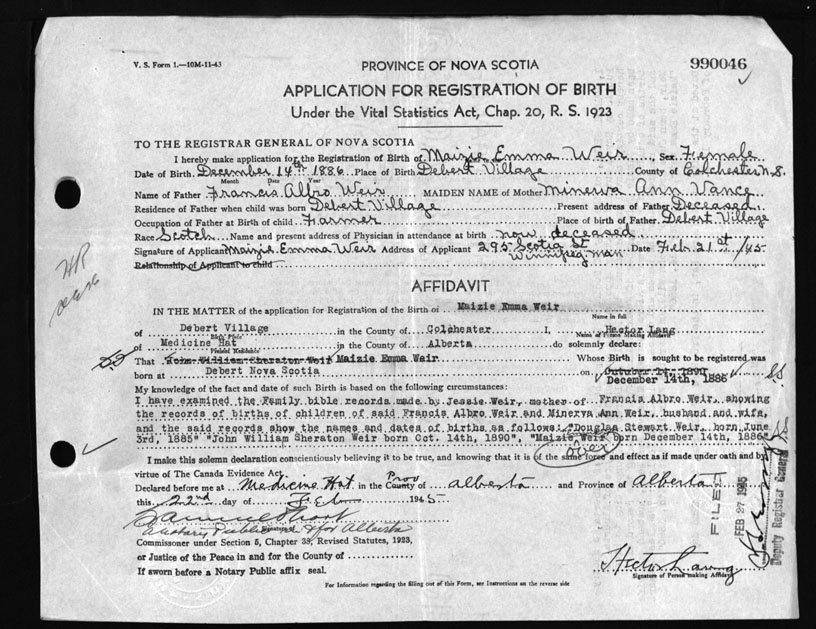 V. S. Form 1.—10M-11-43
PROVINCE OF NOVA SCOTIA
990046
APPLICATION FOR REGISTRATION OF BIRTH
Under the Vital Statistics Act, Chap. 20, R. S. 1923
TO THE REGISTRAR GENERAL OF NOVA SCOTIA
I hereby make application for the Registration of Birth of Maizie Emma Weir, Sex Female
Date of Birth December 14th 1886 Place of Birth Debert Village County of Colchester N.S.
Month Date Year
Name of Father Francis Albro Weir MAIDEN NAME of Mother Minerva Ann Vance
Residence of Father when child was born Debert Village Present address of Father Deceased
Occupation of Father at Birth of child Farmer Place of birth of Father Debert Village
Race Scotch Name and present address of Physician in attendance at birth now deceased
Signature of Applicant Maizie Emma Weir Address of Applicant 295 Scotia St Date Feb. 21st /45
Winnipeg Man
Relationship of Applicant to child
HR
AFFIDAVIT
IN THE MATTER of the application for Registration of the Birth of Maizie Emma Weir
Name in full
of Debert Village in the County of Colchester I, Hector Lang
Birth Place Name of Person Making Affidavit
of Medicine Hat in the County of Alberta do solemnly declare:
Present Residence
That John William Sheraton Weir Maizie Emma Weir Whose Birth is sought to be registered was
born at Debert Nova Scotia on October 14, 1890
December 14th, 1886
My knowledge of the fact and date of such Birth is based on the following circumstances:
I have examined the Family bible records made by Jessie Weir, mother of Francis Albro Weir, showing
the records of births of children of said Francis Albro Weir and Minerva Ann Weir, husband and wife,
and the said records show the names and dates of births as follows: "Douglas Stewart Weir, born June
3rd, 1885" "John William Sheraton Weir born Oct. 14th, 1890", "Maizie Weir born December 14th, 1886"
(over)
I make this solemn declaration conscientiously believing it to be true, and knowing that it is of the same force and effect as if made under oath and by
virtue of The Canada Evidence Act.
Declared before me at Medicine Hat in the County of Alberta and Province of Alberta
Prov
this 22nd day of Feb 1945
Notary Public for Alberta
Commissioner under Section 5, Chapter 38, Revised Statutes, 1923,
or Justice of the Peace in and for the County of
If sworn before a Notary Public affix seal.
Hector Lang
Signature of Person making Affidavit
For Information regarding the filling out of this Form, see Instructions on the reverse side
FILED
FEB 27 1945
Deputy Registrar General